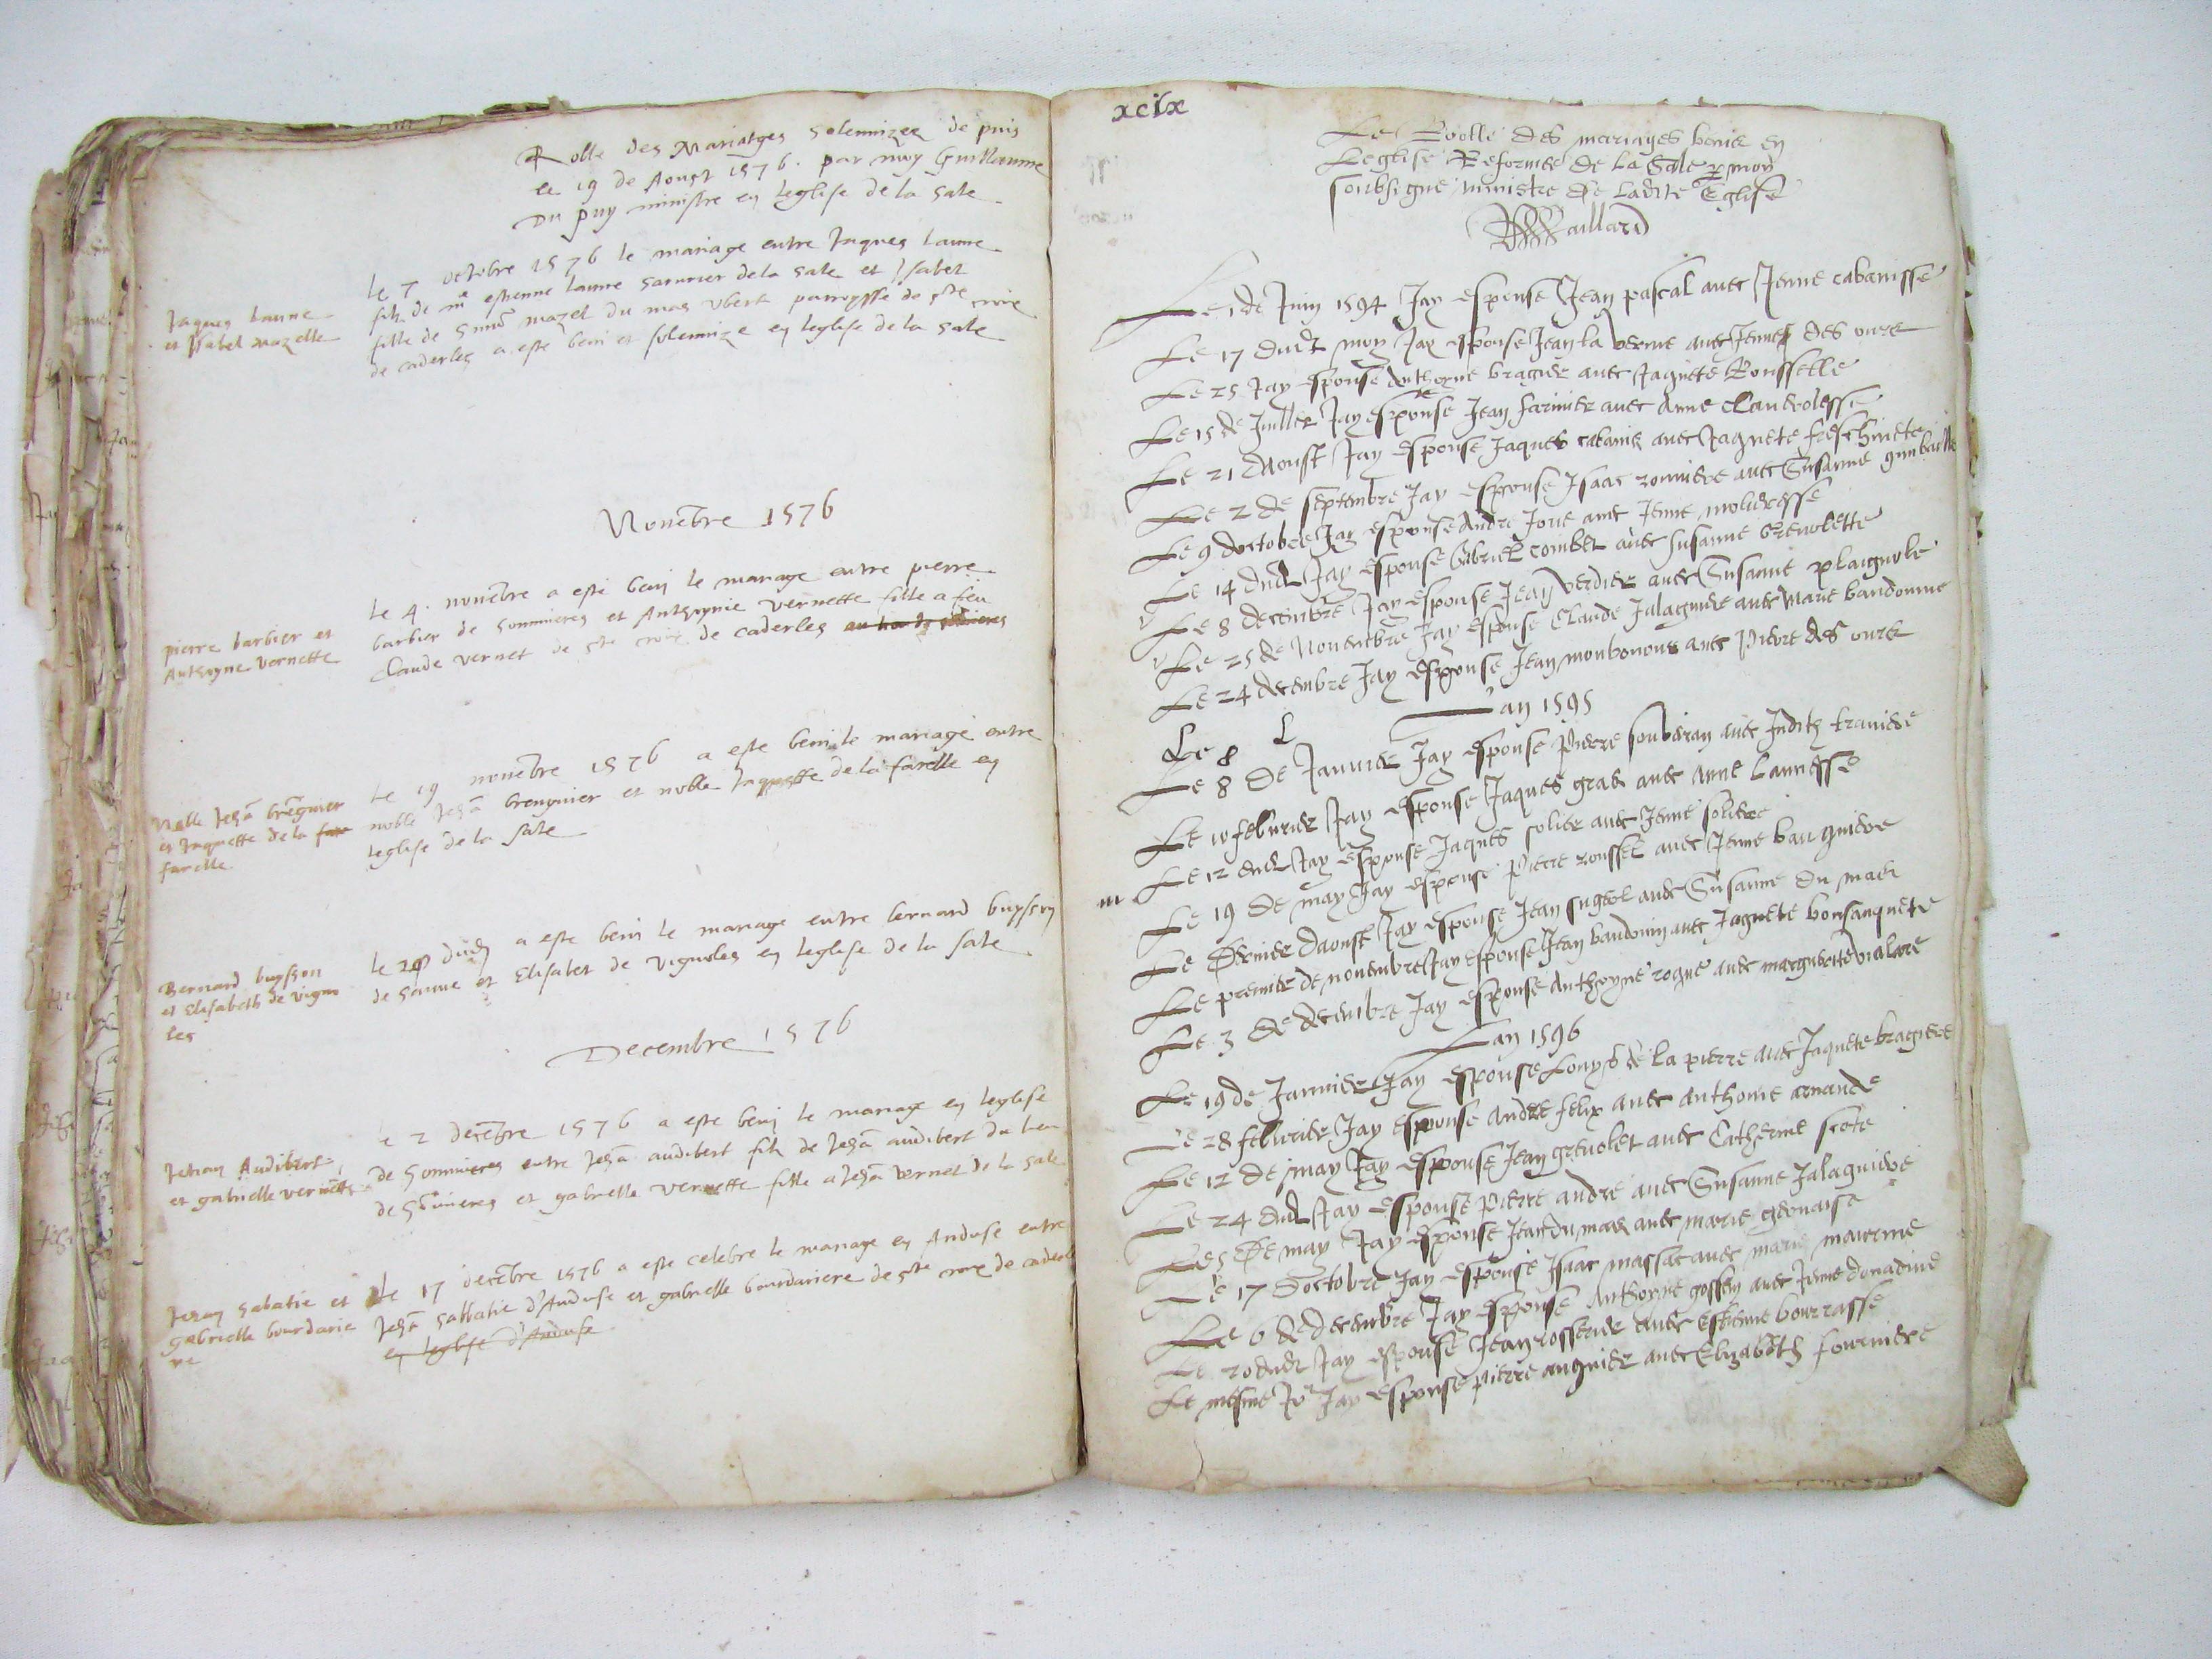 Rolle des Mariatges solemnizez de puis
le 19 de Aoust 1576. par moy Guillaume
Du puy ministre en leglise de la sale
Jaques laune
et Isabel mazelle
le 7 octobre 1576 le mariage entre Jaques laune
filz de me estienne laune sarurier de la sale et Isabet
fille de mazet du mas parroysse de ste croix
de caderles a este beni et solemnize en leglise de la sale
Novēbre 1576
pierre barbier et
Anthoyne vernette
le 4. novēbre a esté beni le mariage entre pierre
barbier de sommieres et Anthoynie vernette fille a feu
Claude vernet de ste croix de caderles
Noble Jehā brēguier
et Jaquette de la
farelle
le 19 novēbre 1576 a este beni le mariage entre
noble Jehā brenguier et noble Jaquette de la farelle en
leglise de la sale
Bernard buysson
et Elisabeth de vigno
les
le dudj a este beni le mariage entre bernard buysson
de sauve et Elisabet de vignoles en leglise de la sale
Decembre 1576
Jehan Audibert
et gabrielle vernette
le 2 decēbre 1576 a este beni le mariage en leglise
de sommieres entre Jehā audibert filz de Jehā audibert du lieu
de sōmieres et gabrielle vernette fille a Jehā vernet de la sale
Jehan sabatie et
gabrielle bourdarie
re
le 17 decēbre 1576 a este celebre le mariage en Anduse entre
Jehā sabbatie d'Anduse et gabrielle bourdariere de ste croix de caderles
en leglise d'Anduse
xcix
Le Roolle des mariages benis en
Leglise Reformée de la Sale par moy
soubsigne ministre de ladite Eglise
Paillard
Le 1 de Juin 1594 Jay espouse Jean pascal avec Jenne cabanisse
Le 17 dudt moy Jay espouse Jean la verne avec Jenne des ours
Le 25 Jay espouse Anthoyne bragier avec Jaquete Rousselle
Le 15 de Juillet Jay espouse Jean farnier avec Anne Clauvolesse
Le 21 daoust Jay espouse Jaques cabanis avec Jaquete freschinete
Le 2 de septembre Jay espouse Isaac avec Susanne
Le 9 doctobre Jay espouse Andre Jove avec Jenne molieresse
Le 14 dudt Jay espouse Gabriel combet avec Susanne Grevolette
Le 8 decembre Jay espouse Jean verdier avec Susanne plaignole
Le 25 de Novembre Jay espouse Claude Jalaguier avec Marie baudoinne
Le 24 decembre Jay espouse Jean monbonous avec Pierre des ours
Lan 1595
Le 8 L
Le 8 de Janvier Jay espouse Pierre soubeiran avec Judith traviere
Le 10 febvrier Jay espouse Jaques gras avec Anne launesse
Le 12 dudt Jay espouse Jaques solier avec Jenne soliere
m Le 19 de may Jay espouse Pierre roussel avec Jenne bauguiere
Le Dernier daoust Jay espouse Jean sugeol avec Susanne du mach
Le premier de novembre Jay espouse Jean baudouin avec Jaquete bonsanquete
Le 3 de decembre Jay espouse Anthoyne roque avec marguerite vialare
Lan 1596
Le 19 de Janvier Jay espouse Louys de la pierre avec Jaquete bragiere
Le 28 febvrier Jay espouse Andre felix avec Anthonie arnaude
Le 12 de may Jay espouse Jean grevolet avec Catherine scote
Le 24 dudt Jay espouse Pierre andre avec Susanne Jalaguiere
Le 5 De may Jay espouse Jean du mach avec marie gervaise
Le 17 Doctobre Jay espouse Isaac massac avec marie maurine
Le 6 de decembre Jay espouse Anthoyne gossen avec Jenne donadive
Le 20 dudt Jay espouse Jean rosserier avec Estienne bourrasse
Le mesme Jor Jay espouse pierre auguier avec Elizabeth fourniere